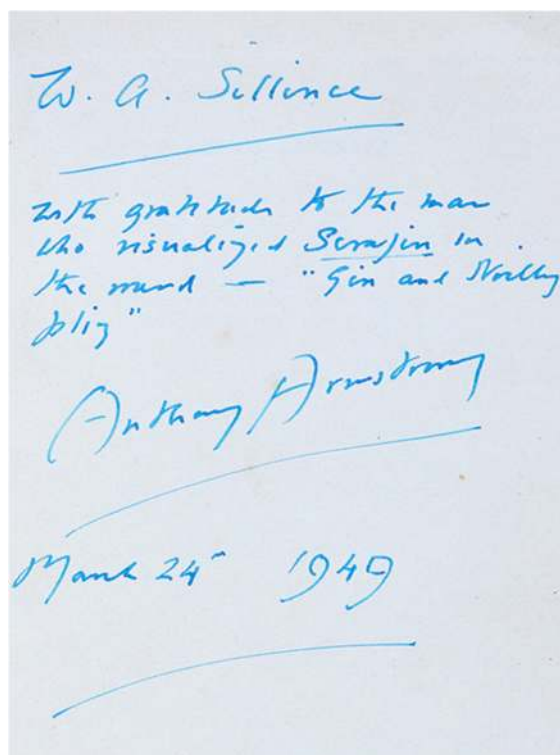 W. A. Sillince
with gratitude to the man
who visualized in
the mind — "Gin and Noilly
pliz"
Anthony Armstrong
March 24 1949